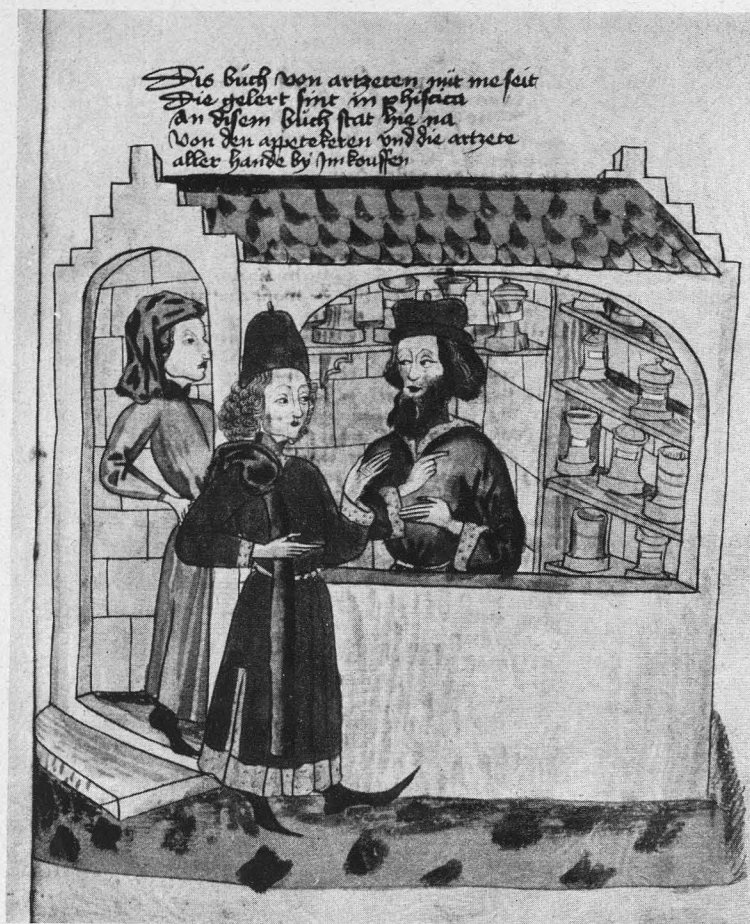 Dis bůch von artzeten nüt me seit
Die gelert sint in phisicca
An disem bůch stat hie na
Von den appetekeren vnd die artzete
aller hande by Im kouffen